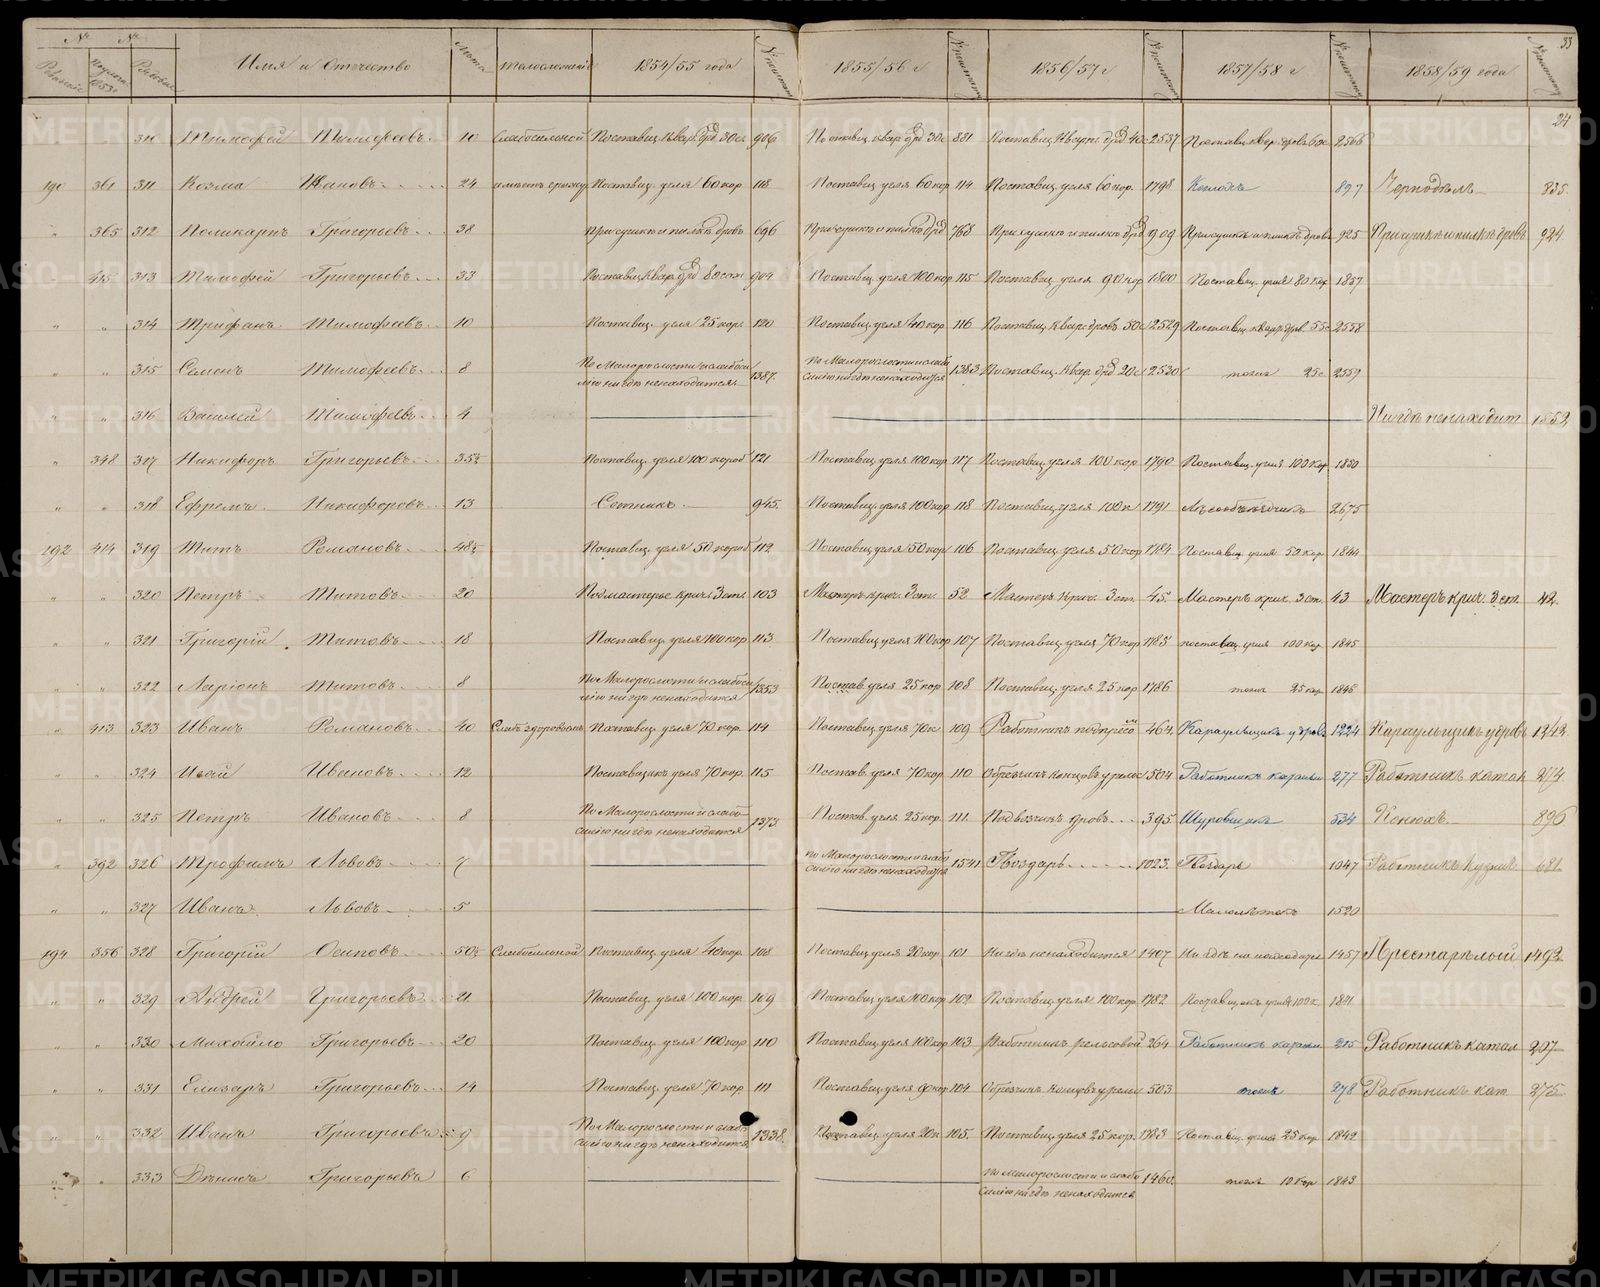 33
№ №
Имя и Отчество Лѣта Тѣлосложение 1854/55 года 1855/56 г 1856/57 г 1857/58 г 1858/59 года
24
310 Тимофей Тимофеевъ 10 Слабосильной Поставщ. Квар. дрд 30 са 906 Поставщ. квар. дрд 30 с 881 Поставщ. Кварт. дрд 40 с 2537 2566
190 361 311 Козма Ивановъ 24 имѣетъ грыжу Поставщ. угля 60 кор 118 Поставщ. угля 60 кор 114 Поставщ. угля 60 кор. 1798 Конюхъ 897 835
" 365 312 Поликарпъ Григорьевъ 38 При сушкѣ и пилкѣ дровъ 696 При сушкѣ и пилкѣ дрд 768 При сушкѣ и пилкѣ дрд 909 При сушкѣ и пилкѣ дровъ 925 При сушкѣ и пилкѣ дровъ 924
" 415 313 Тимофей Григорьевъ 33 Поставщ. Квар. дрд 80 саж 904 Поставщ. угля 100 кор 115 Поставщ. угля 90 кор 1800 Поставщ. угля 80 кор 1857
" " 314 Трифанъ Тимофеевъ 10 Поставщ. угля 25 кор. 120 Поставщ. угля 40 кор 116 Поставщ. Квар. дровъ 50 с 2529 Поставщ. квар. дров. 55 с 2558
" " 315 Семенъ Тимофеевъ 8 По Малорослости и слабоси 1387 По Малорослости и слабо 1383 Поставщ. Квар. дрд 20 с 2530 тоже 25 с 2559
лию нигдѣ ненаходится силию нигдѣ ненаходится
" " 316 Василей Тимофеевъ 4 Нигдѣ ненаходит 1552
" 348 317 Никифоръ Григорьевъ 35½ Поставщ. угля 100 короб 121 Поставщ. угля 100 кор 117 Поставщ. угля 100 кор 1790 Поставщ. угля 100 кор 1850
" " 318 Ефремъ Никифоровъ 13 Сотникъ 945 Поставщ. угля 100 кор 118 Поставщ. угля 100 к 1791 2675
192 414 319 Титъ Романовъ 48½ Поставщ. угля 50 короб 112 Поставщ. угля 50 кор 106 Поставщ. угля 50 кор 1784 Поставщ. угля 50 кор 1844
" " 320 Петръ Титовъ 20 Подмастерье крич. 3 ст. 103 Мастеръ крич. 3 ст. 52 Мастеръ крич. 3 ст. 45 Мастеръ крич. 3 ст. 43 Мастеръ крич. 3 ст. 42
" " 321 Григорій Титовъ 18 Поставщ. угля 100 кор 113 Поставщ. угля 100 кор 107 Поставщ. угля 70 кор 1785 поставщ. угля 100 кор 1845
" " 322 Ларіонъ Титовъ 8 По Малорослости и слабоси 1353 Постав. угля 25 кор 108 Поставщ. угля 25 кор 1786 тоже 25 кор 1846
лию нигдѣ ненаходится
" 413 323 Иванъ Романовъ 40 Слабъ здоровьемъ Поставщ. угля 70 кор. 114 Поставщ. угля 70 к 109 Работникъ 464 Караульщикъ у дровъ 1224 Караульщикъ у дровъ 1242
" " 324 Исай Ивановъ 12 Поставщикъ угля 70 кор. 115 Постав. угля 70 кор 110 504 Работникъ 277 Работникъ катал 274
" " 325 Петръ Ивановъ 8 По Малорослости и слабо 1373 Постав. угля 25 кор 111 Подвозчикъ дровъ 395 Шуровщикъ 534 Конюхъ 896
силию нигдѣ ненаходится
" 392 326 Трофимъ Львовъ 7 По Малорослости и слабо 1541 Гвоздарь 1023 Гвоздарь 1047 Работникъ 681
силию нигдѣ ненаходится
" " 327 Иванъ Львовъ 5 Малолѣтокъ 1520
194 356 328 Григорій Осиповъ 50½ Слабосильной Поставщ. угля 40 кор. 108 Поставщ. угля 20 кор 101 Нигдѣ ненаходится 1407 Нигдѣ не находится 1457 Престарѣлый 1492
" " 329 Андрей Григорьевъ 21 Поставщ. угля 100 кор. 109 Поставщ. угля 100 кор 102 Поставщ. угля 100 кор. 1782 Поставщикъ угля 100 к. 1841
" " 330 Михайло Григорьевъ 20 Поставщ. угля 100 кор 110 Поставщ. угля 100 кор 103 Работникъ рельсовой 264 Работникъ 215 Работникъ катал 207
" " 331 Елизаръ Григорьевъ 14 Поставщ. угля 70 кор. 111 Поставщ. угля 90 кор 104 503 тоже 278 Работникъ кат. 275
" " 332 Иванъ Григорьевъ 9 По Малорослости и слабо 1338 Поставщ. угля 20 к 105 Поставщ. угля 25 кор. 1783 Поставщ. угля 25 кор 1842
силию нигдѣ ненаходится
" " 333 Дѣнисъ Григорьевъ 6 По малорослости и слабо 1460 тоже 10 кор 1843
силию нигдѣ ненаходится
METRIKI.GASO-URAL.RU